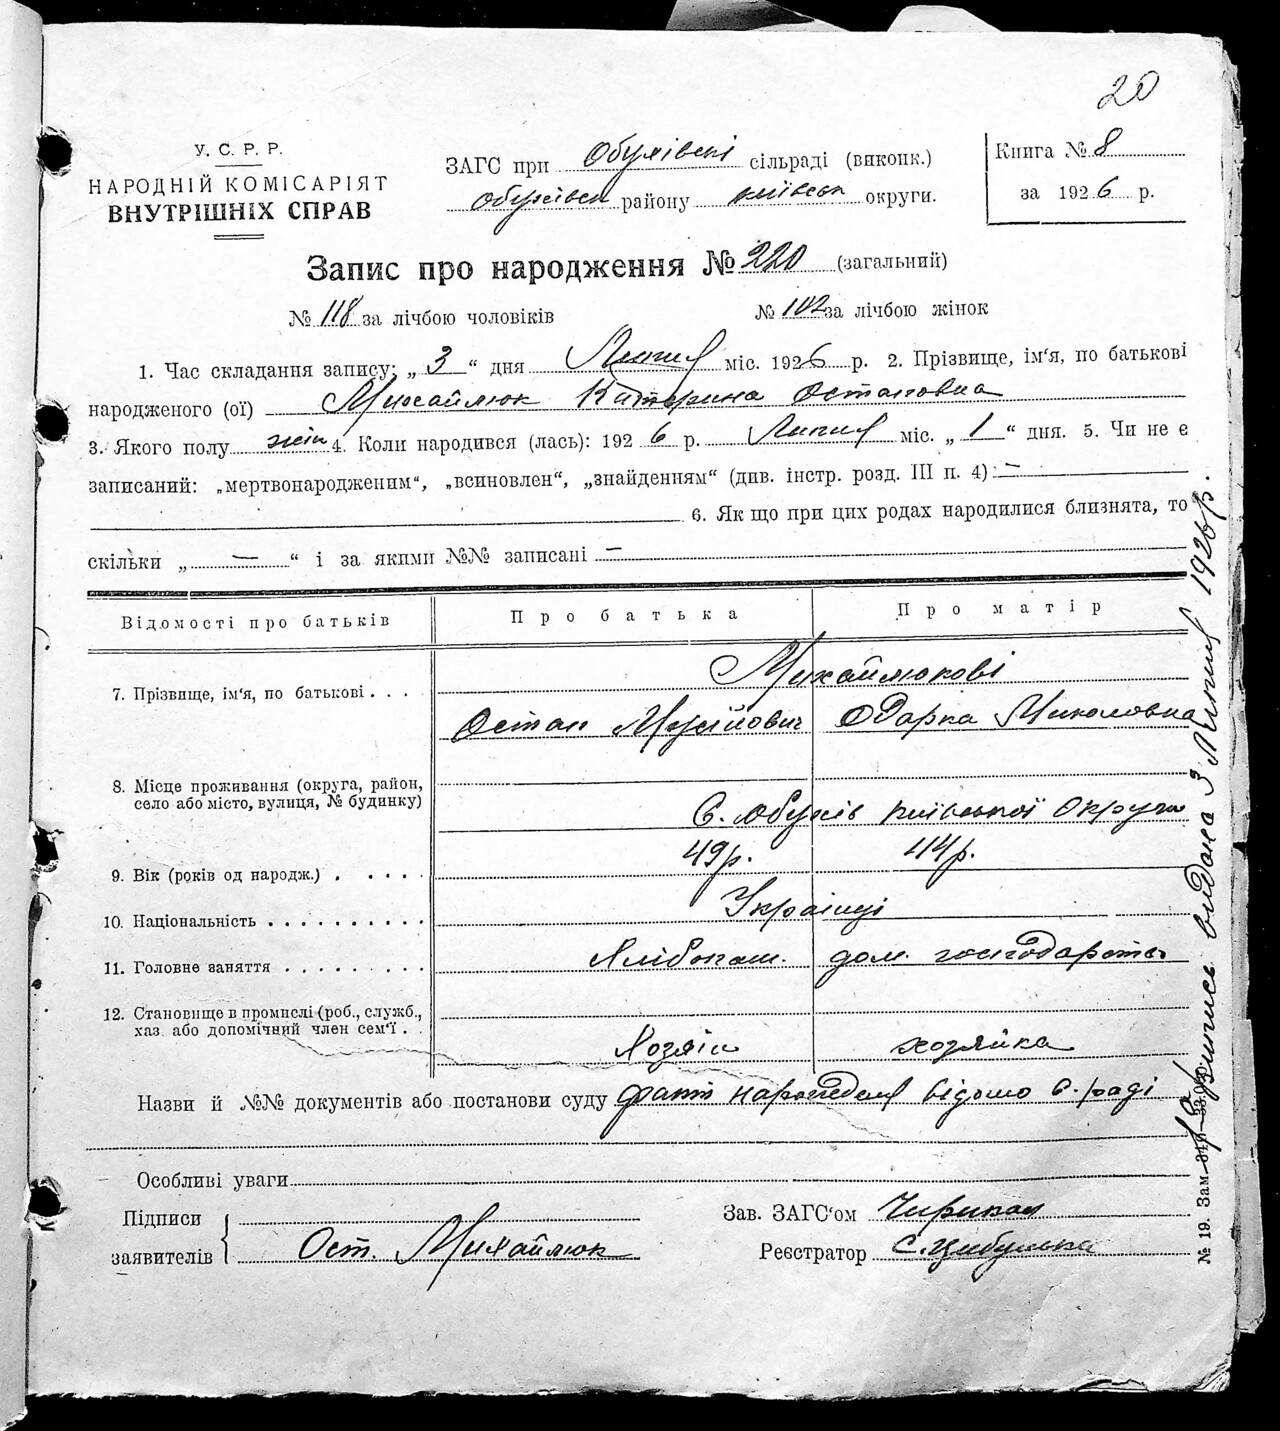 20
У. С. Р. Р.
НАРОДНІЙ КОМІСАРІЯТ
ВНУТРІШНІХ СПРАВ
ЗАГС при Обухівскі сільраді (виконк.)
Обухівськ району київськ округи.
Книга № 8
за 1926 р.
Запис про народження № 220 (загальний)
№ 118 за лічбою чоловіків № 102 за лічбою жінок
1. Час складання запису: „ 3 “ дня Липня міс. 1926 р. 2. Прізвище, ім'я, по батькові
народженого (ої) Михайлюк Катерина Остаповна
3. Якого полу жін 4. Коли народився (лась): 1926 р. Липня міс. „ 1 “ дня. 5. Чи не є
записаний: „мертвонародженим“, „всиновлен“, „знайденням“ (див. інстр. розд. III п. 4) —
6. Як що при цих родах народилися близнята, то
скільки „ — “ і за якими №№ записані —
Відомості про батьків Про батька Про матір
7. Прізвище, ім'я, по батькові . . . Михайлюкові
Остап Мусійович Одарка Миколовна
8. Місце проживання (округа, район,
село або місто, вулиця, № будинку)
С. Обухів київської Округи
9. Вік (років од народж.) . . . . . 49р. 44р.
10. Національність . . . . . . . . . . Українці
11. Головне заняття . . . . . . . . . Хлібопаш. дом. господарство
12. Становище в промислі (роб., служб.,
хаз. або допомічний член сем'ї . .
Хозяін хозяйка
Назви й №№ документів або постанови суду факт народження відомо с. раді
Особливі уваги
Підписи
заявителів { Ост. Михайлюк
Зав. ЗАГС'ом
Реєстратор С. Цибулька
Випись видана 3 Липня 1926 р.
№ 19. Зам.